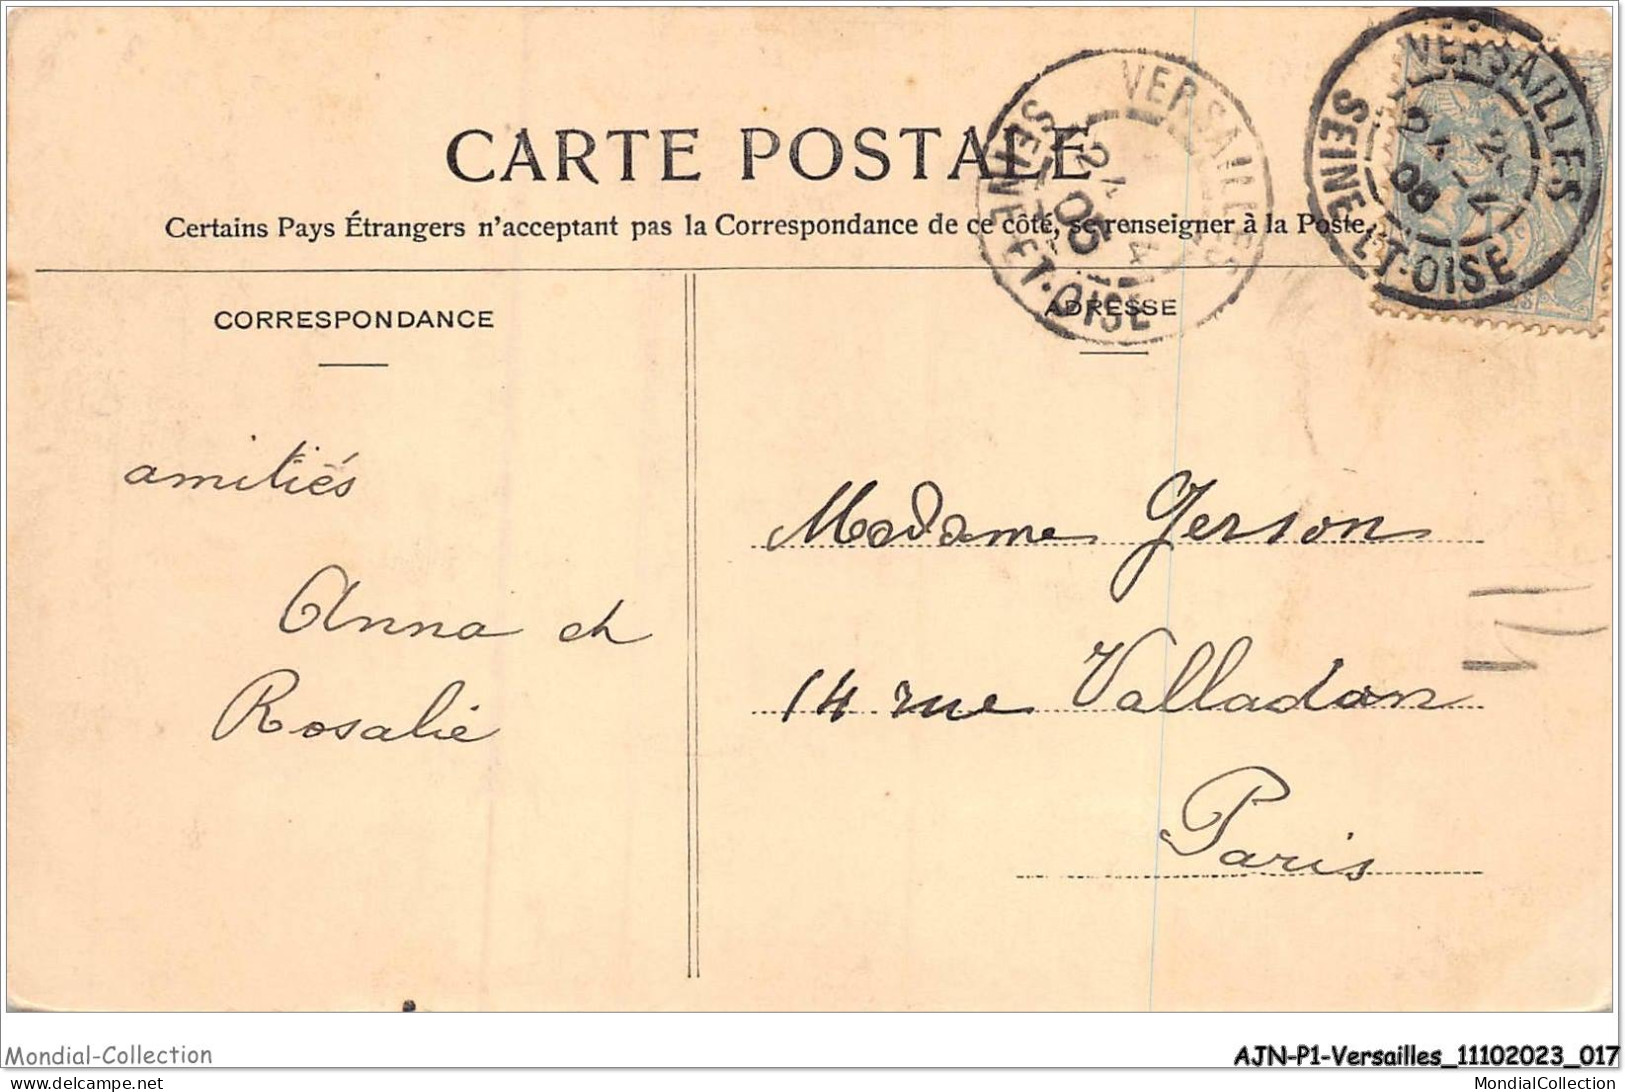 CARTE POSTALE
Certains Pays Étrangers n'acceptent pas la Correspondance de ce côté, se renseigner à la Poste.
VERSAILLES
SEINE-ET-OISE
VERSAILLES
SEINE-ET-OISE
CORRESPONDANCE
ADRESSE
amitiés
Anna et
Rosalie
Madame Gerson
14 rue Valladon
Paris
Mondial-Collection
AJN-P1-Versailles_11102023_017
MondialCollection